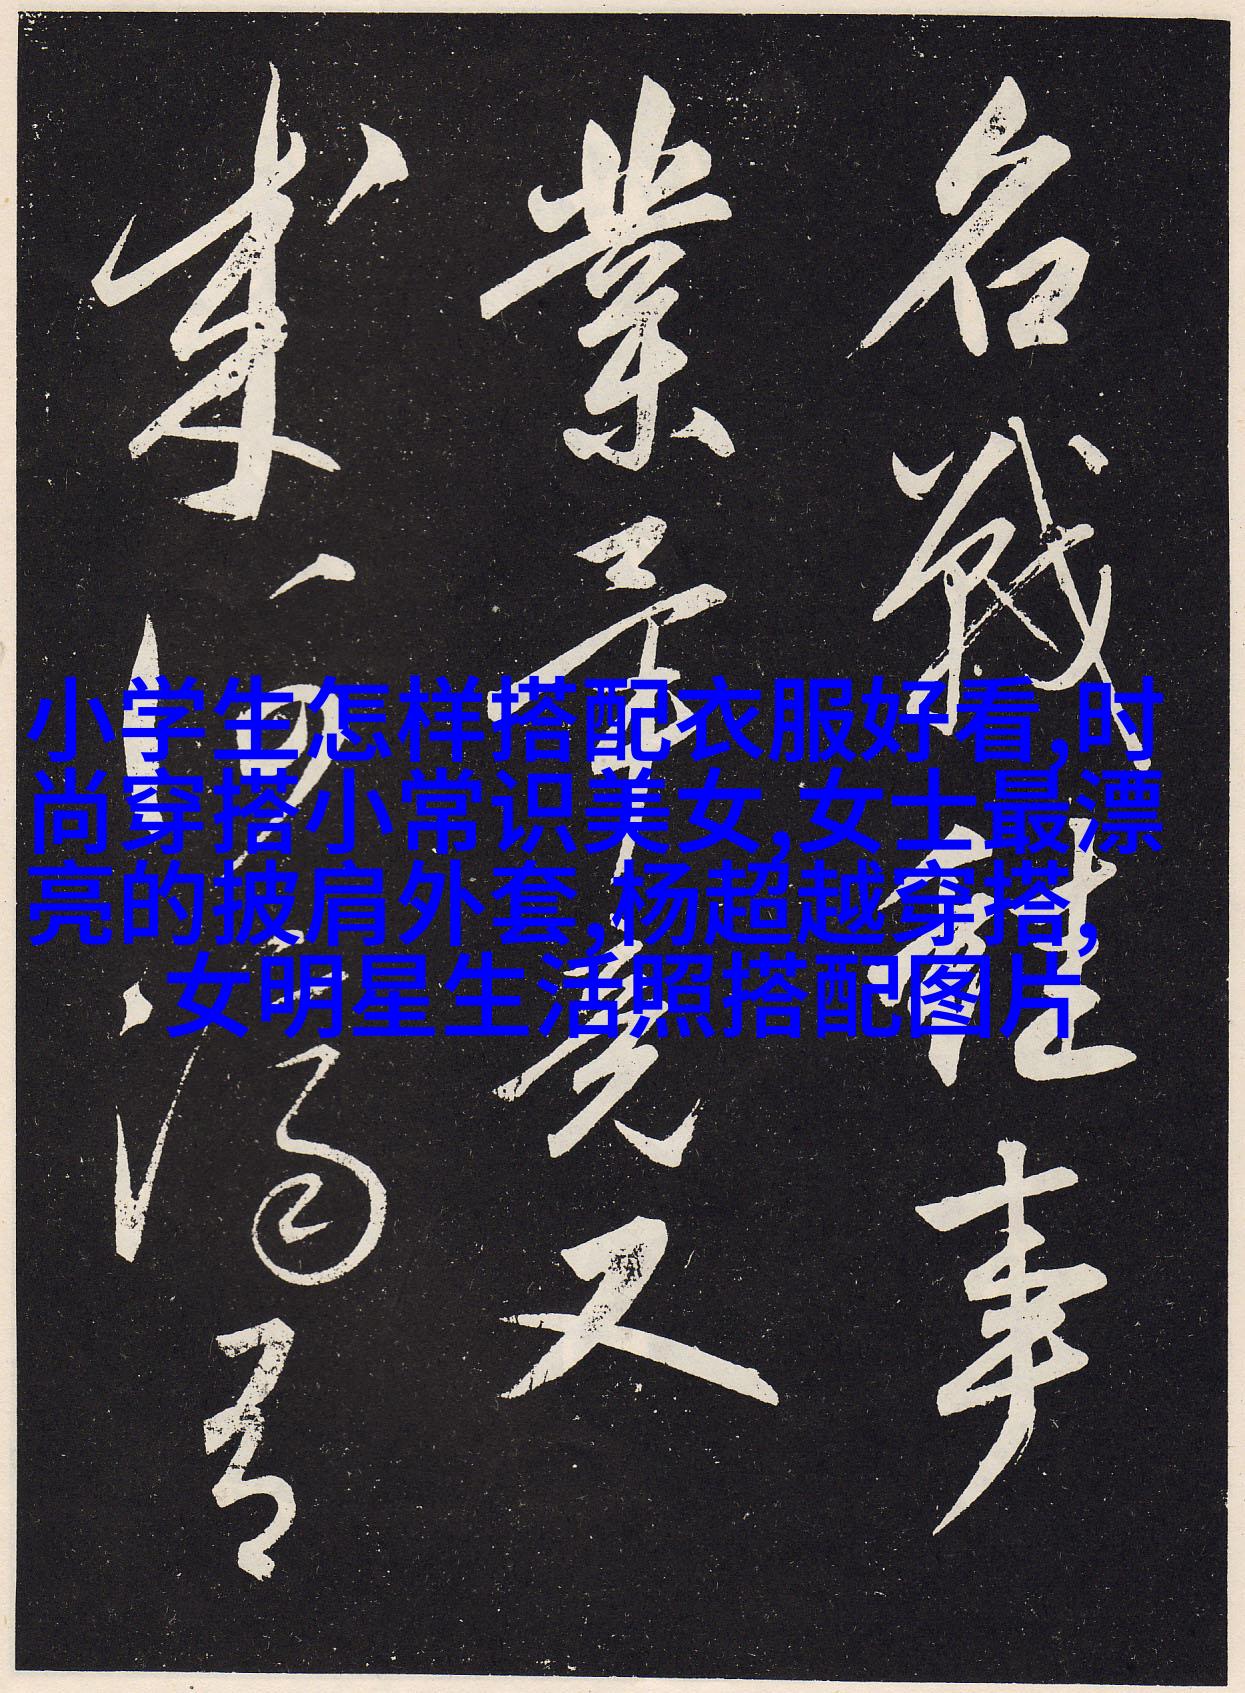 小学生怎样搭配衣服好看,时
尚穿搭小常识美女,女士最漂
亮的披肩外套,杨超越穿搭,
女明星生活照搭配图片
名戰雖事
業竟又
成何